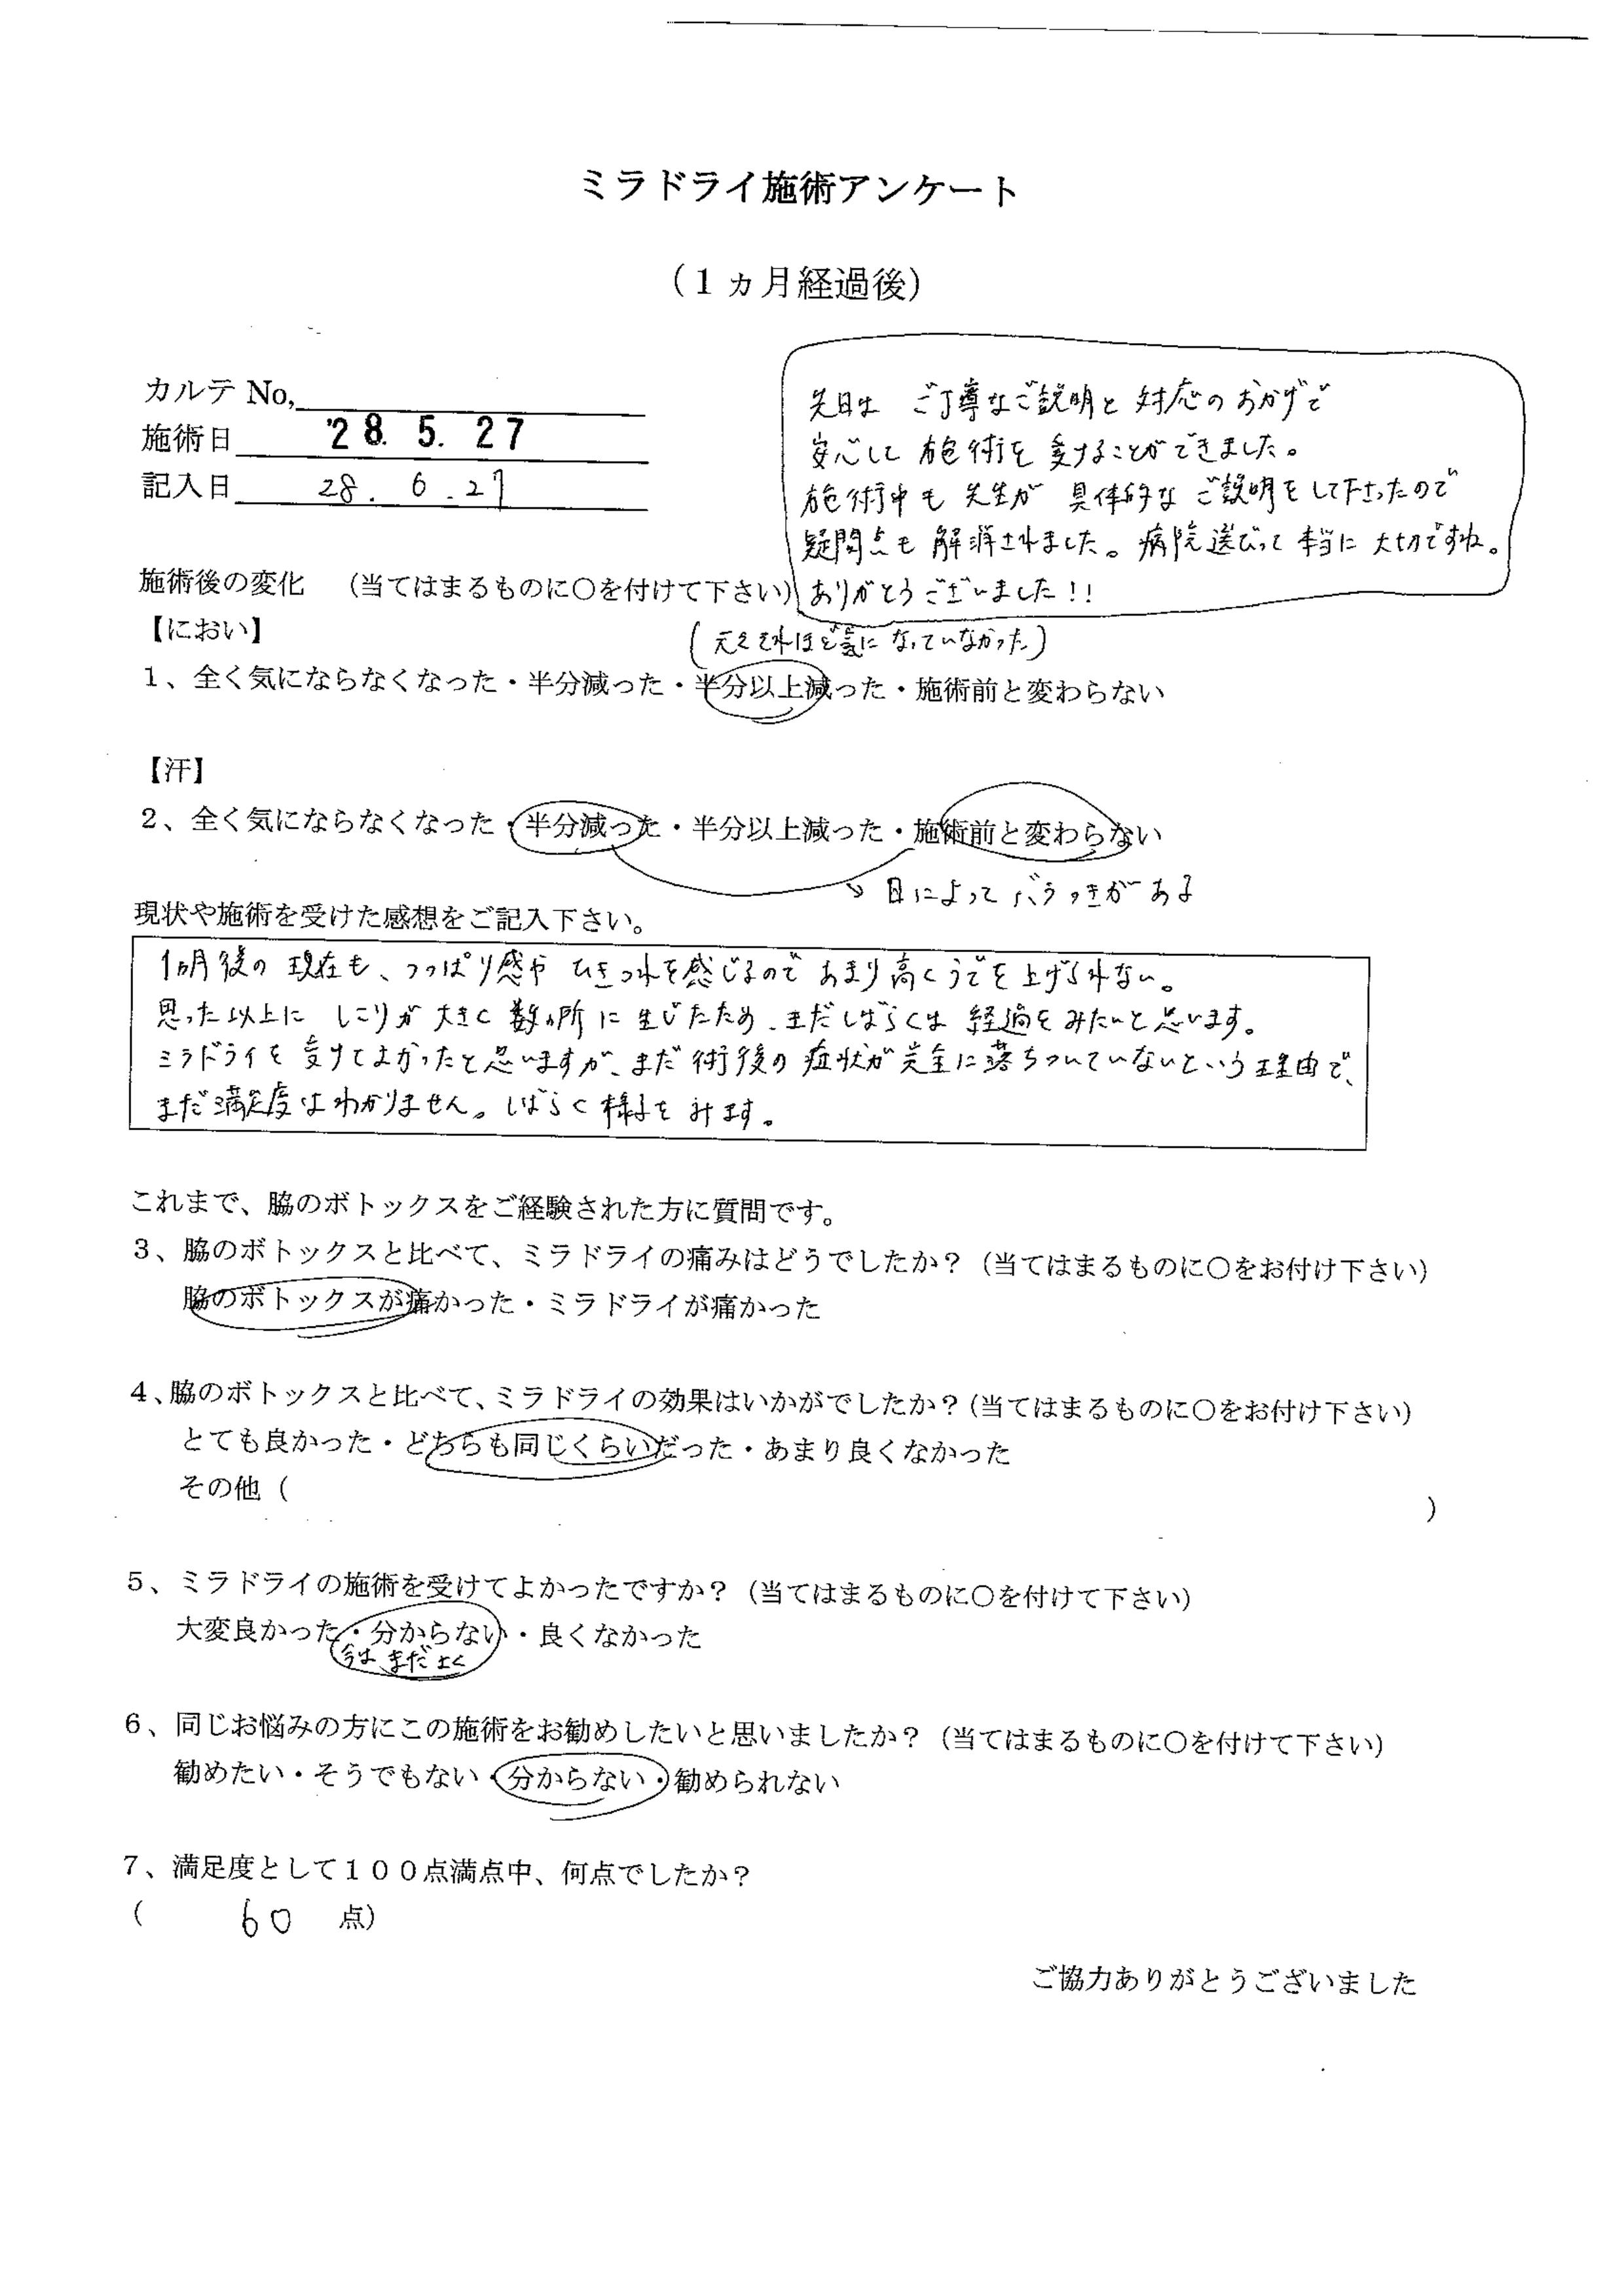 ミラドライ施術アンケート
（１ヵ月経過後）
カルテ No,
施術日 '28. 5. 27
記入日 28. 6. 27
先日は ご丁寧なご説明と 対応の おかげで
安心して 施術を 受けることが できました。
施術中も 先生が 具体的な ご説明をして下さったので
疑問点も 解消されました。病院選びって 本当に 大切ですね。
ありがとうございました!!
施術後の変化 （当てはまるものに〇を付けて下さい）
【におい】
(元々それほど気に なっていなかった)
１、全く気にならなくなった・半分減った・半分以上減った・施術前と変わらない
【汗】
２、全く気にならなくなった・半分減った・半分以上減った・施術前と変わらない
↘ 日によって バラつきが ある
現状や施術を受けた感想をご記入下さい。
1ヵ月後の 現在も、つっぱり感や ひきつれを感じるので あまり高くうでを上げられない。
思った以上に しこりが 大きく 数ヵ所に 生じたため、まだしばらくは 経過を みたいと思います。
ミラドライを 受けてよかったと思いますが、まだ 術後の 症状が 完全に落ちついていないという理由で、
まだ満足度はわかりません。しばらく様子を みます。
これまで、脇のボトックスをご経験された方に質問です。
３、脇のボトックスと比べて、ミラドライの痛みはどうでしたか？（当てはまるものに〇をお付け下さい）
脇のボトックスが痛かった・ミラドライが痛かった
４、脇のボトックスと比べて、ミラドライの効果はいかがでしたか？（当てはまるものに〇をお付け下さい）
とても良かった・どちらも同じくらいだった・あまり良くなかった
その他（ ）
５、ミラドライの施術を受けてよかったですか？（当てはまるものに〇を付けて下さい）
大変良かった・分からない・良くなかった
今は まだ よく
６、同じお悩みの方にこの施術をお勧めしたいと思いましたか？（当てはまるものに〇を付けて下さい）
勧めたい・そうでもない・分からない・勧められない
７、満足度として１００点満点中、何点でしたか？
（ 60 点）
ご協力ありがとうございました